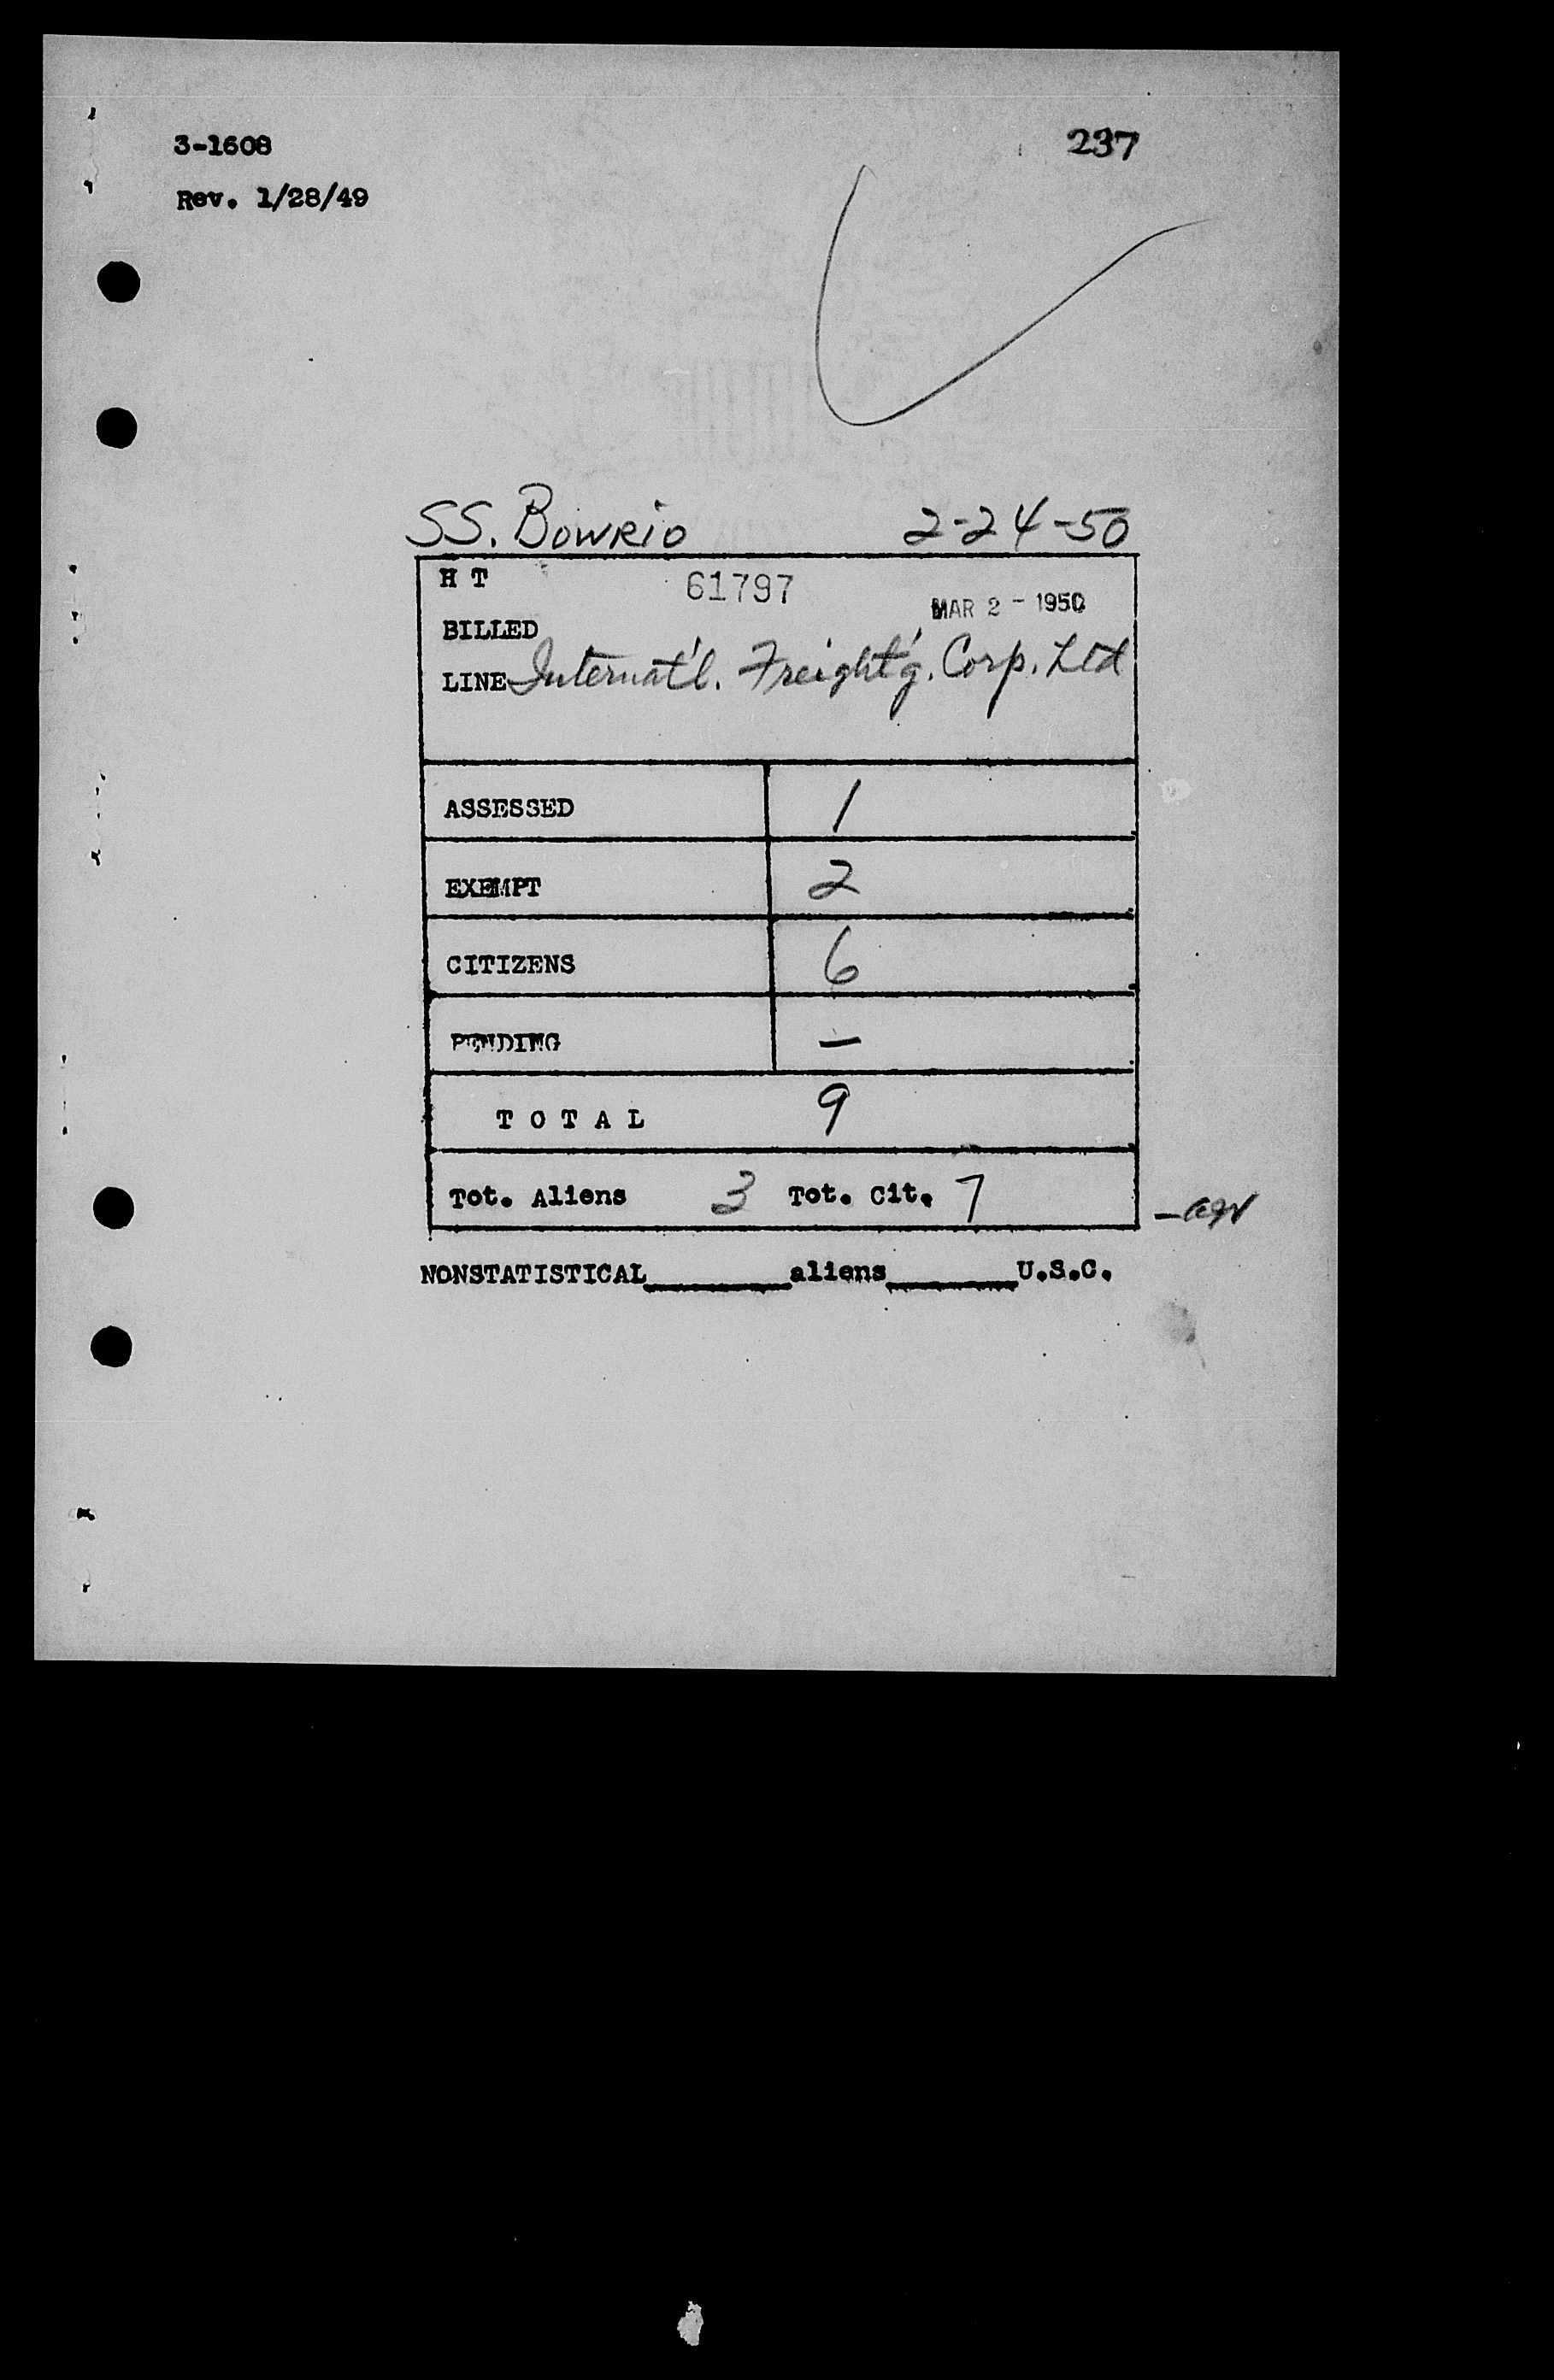 3-1608
237
Rev. 1/28/49
SS. Bowrio 2-24-50
H T 61797 MAR 2 - 1950
BILLED
LINE Internat'l. Freight'g. Corp. Ltd
ASSESSED 1
EXEMPT 2
CITIZENS 6
PENDING —
TOTAL 9
Tot. Aliens 3 Tot. Cit. 7
NONSTATISTICAL______aliens______U.S.C.